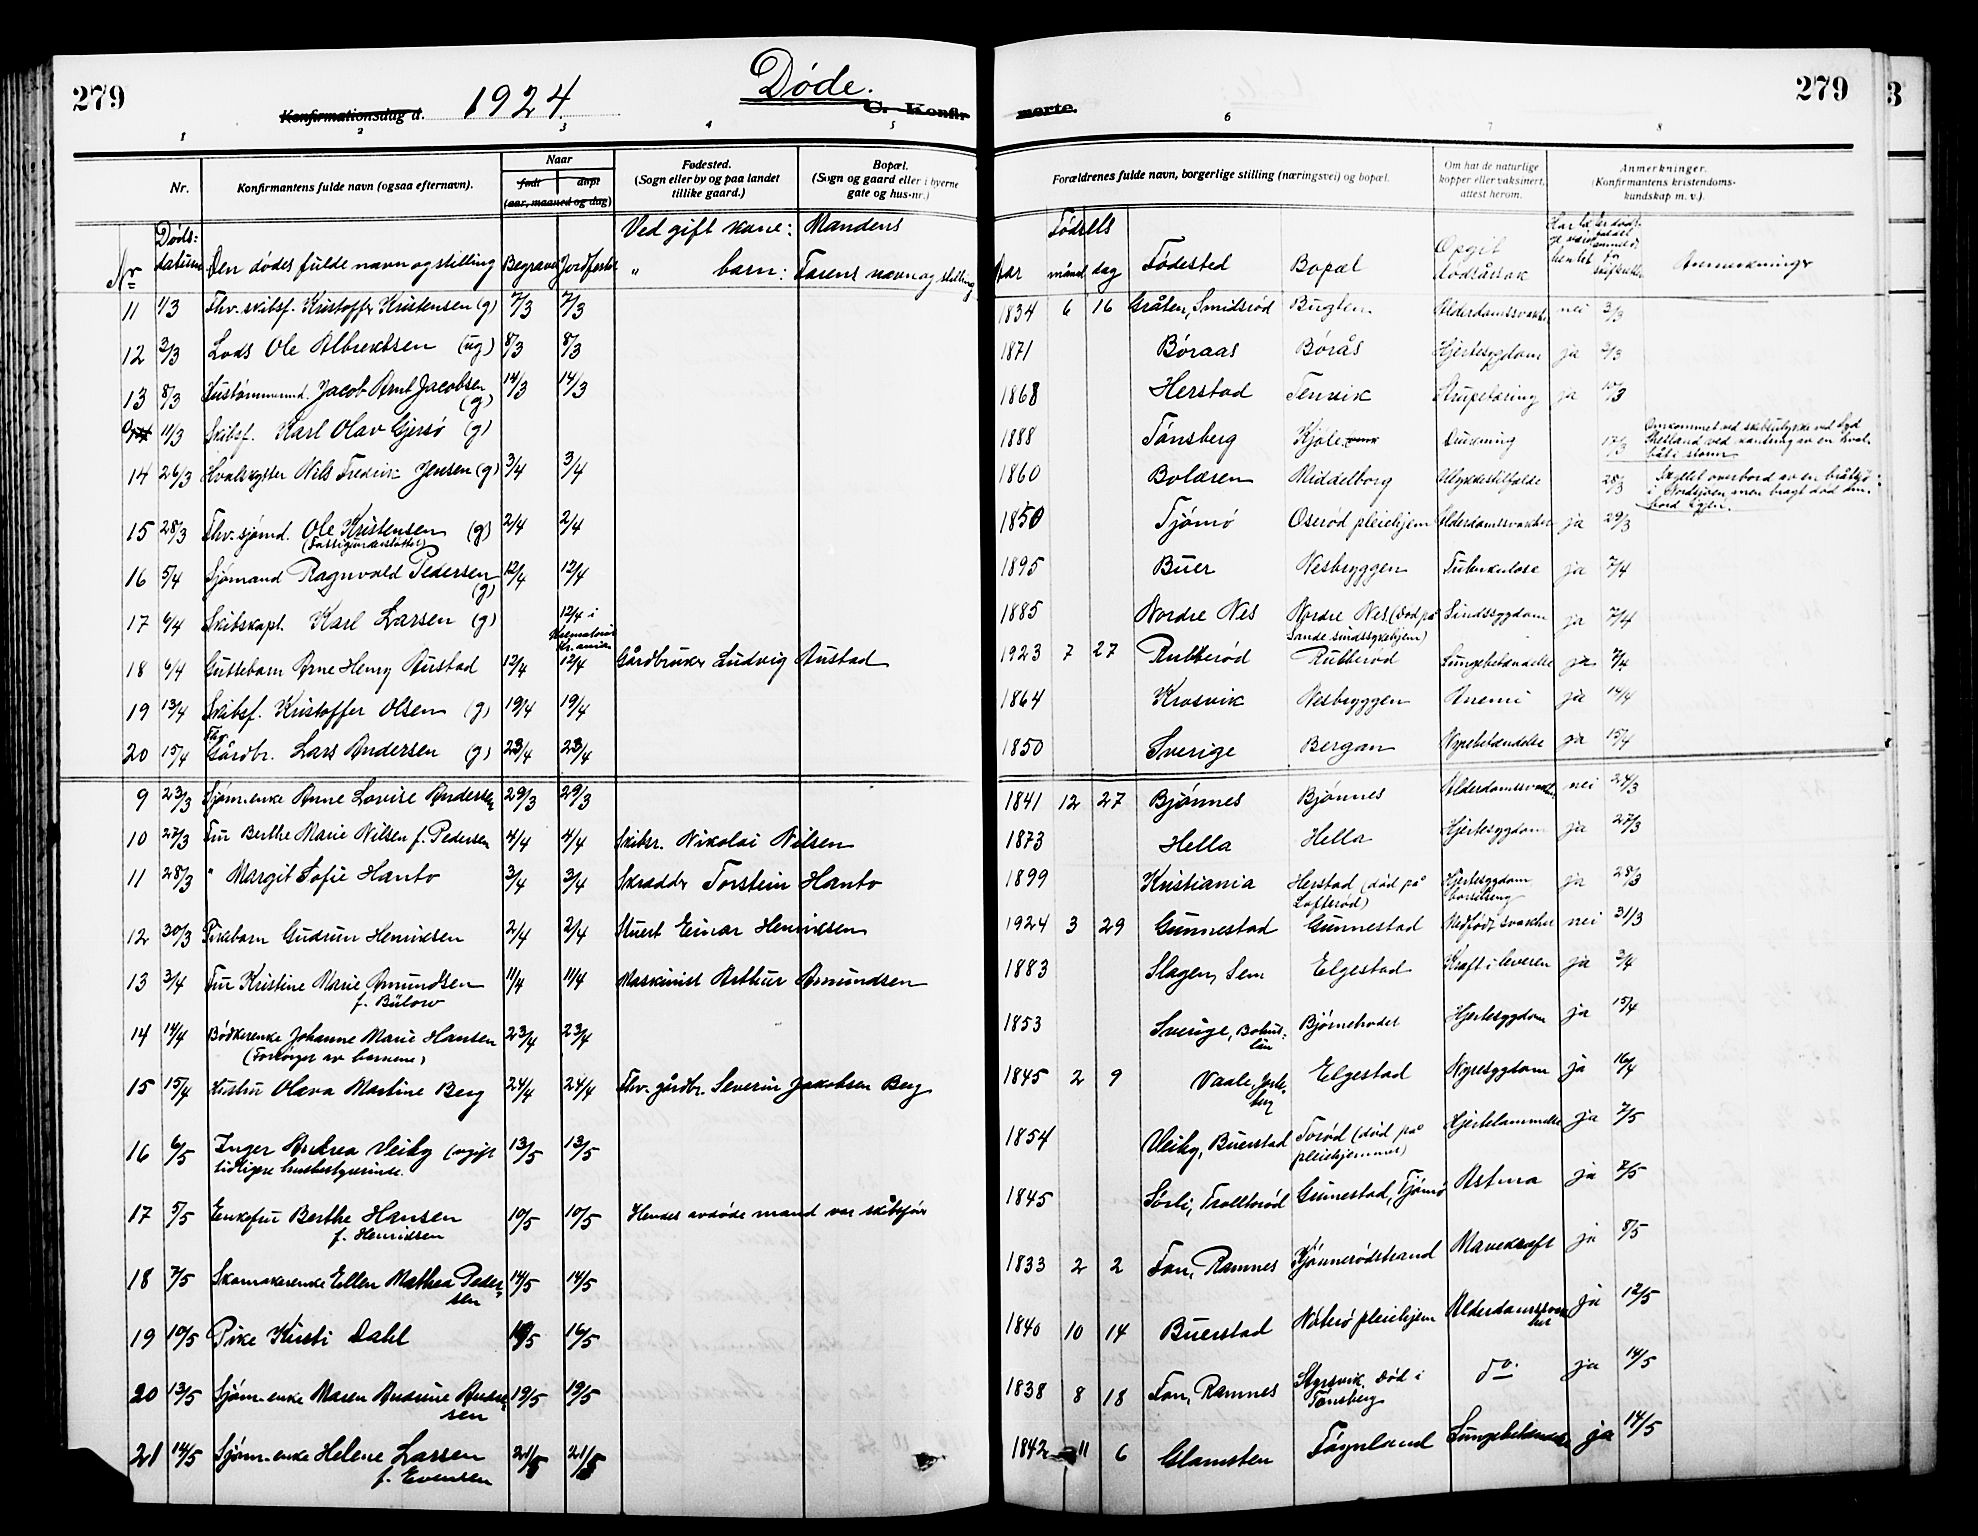 279
Konfirmationsdag d. 1924.
Døde.
C. Konfirmerte.
279
3
1 2 3 4 5 6 7 8
Nr.
Konfirmantens fulde navn (ogsaa efternavn).
Naar
født døpt
(aar, maaned og dag)
Fødested.
(Sogn eller by og paa landet
tillike gaard.)
Bopæl.
(Sogn og gaard eller i byerne
gate og hus-nr.)
Forældrenes fulde navn, borgerlige stilling (næringsvei) og bopæl.
Om hat de naturlige
kopper eller vaksinert,
attest herom.
Anmerkninger.
(Konfirmantens kristendoms-
kundskap m. v.).
Nr Døds: datum Den dødes fulde navn og stilling Begravet Jordfestet
Ved gift kone: Mandens
" barn: Farens navn og stilling
Fødsels
Aar måned dag Fødested Bopæl Opgit dødsårsak Anmerkninger
11 1/3 Fhv. skibsf. Kristoffer Kristensen (g) 7/3 7/3 1834 6 16 Gråten, Smidsrød Buglen Alderdomssvakhet nei 3/3
12 3/3 Lods Ole Albrektsen (ug) 8/3 8/3 1871 Børaas Børås Hjertesygdom ja 3/3
13 8/3 Hustømmermd. Jacob Arnt Jacobsen (g) 14/3 14/3 1868 Herstad Tenvik Strupetæring ja 10/3
11/3 Skibsf. Karl Olav Gjersø (g) 1888 Tønsberg Kjole Drukning 17/3 Omkommet ved skibsulykke ved Syd Shetland ved kantring av en hvalbåt i storm
14 26/3 Hvalskytter Nils Fredrik Jensen (g) 3/4 3/4 1860 Bolæren Middelborg Ulykkestilfælde 28/3 Skyllet overbord av en bråtsjø i Nordsjøen, men bragt død ombord igjen.
15 28/3 Fhv. sjømd. Ole Kristensen (g) 2/4 2/4 1850 Tjømø Oserød pleiehjem Alderdomssvakhet ja 29/3
(Fattigunderstøttet)
16 5/4 Sjømand Ragnvald Pedersen (g) 12/4 12/4 1895 Buer Nesbryggen Tuberkulose ja 7/4
17 6/4 Skibskapt. Karl Larsen (g) 12/4 i Krematoriet Kr.ania 1885 Nordre Nes Nordre Nes (død på Sande sindssykehjem) Sindssygdom ja 7/4
18 6/4 Guttebarn Arne Henry Austad 12/4 12/4 Gårdbruker Ludvig Austad 1923 7 27 Rubberød Rubberød Lungebetændelse ja 7/4
19 13/4 Skibsf. Kristoffer Olsen (g) 19/4 19/4 1864 Krosvik Nesbryggen Anemi ja 14/4
20 15/4 Fhv. Gårdbr. Lars Andersen (g) 23/4 23/4 1850 Sverige Bergan Nyrebetændelse ja 15/4
9 23/3 Sjøm.enke Anne Lovise Andersen 29/3 29/3 1841 12 27 Bjønnes Bjønnes Alderdomssvakhet nei 24/3
10 27/3 Fru Berthe Marie Nilsen f. Pedersen 4/4 4/4 Skibsr. Nikolai Nilsen 1873 Hella Hella Hjertesygdom ja 27/3
11 28/3 " Margit Sofie Hanto 3/4 3/4 Skrædder Torstein Hanto 1899 Kristiania Herstad (død på Lofterød) Hjertesygdom barselseng ja 28/3
12 30/3 Pikebarn Gudrun Henriksen 2/4 2/4 Stuert Einar Henriksen 1924 3 29 Gunnestad Gunnestad Medfødt svakhet nei 31/3
13 3/4 Fru Kristine Marie Amundsen f. Bülow 11/4 11/4 Maskinist Arthur Amundsen 1883 Slagen, Sem Elgestad Kræft i leveren ja 3/4
14 14/4 Bødkerenke Johanne Marie Hansen 23/4 23/4 1853 Sverige, Bohuslän Bjørnebodet Hjertesygdom ja 15/4
(Forsørget av barnene)
15 15/4 Hustru Olava Martine Berg 24/4 24/4 Fhv. gårdbr. Severin Jakobsen Berg 1845 2 9 Vaale Elgestad Nyresygdom ja 16/4
16 6/5 Inger Andrea Veiby (ugift 13/5 13/5 1854 Veiby, Buerstad Torød (død på pleiehjemmet) Hjertelammelse ja 7/5
tidligere husbestyrerinde.
17 5/5 Enkefru Berthe Hansen f. Henriksen 10/5 10/5 Hendes avdøde mand var skibsfører 1845 Sørli, Trollerød Gunnestad, Tjømø Astma ja 7/5
18 7/5 Skomakerenke Ellen Mathea Pedersen 14/5 14/5 1833 2 2 Fon, Ramnes Kjønnerødstrand Mavekræft ja 8/5
19 10/5 Pike Kirsti Dahl 16/5 16/5 1840 10 14 Buerstad Nøterø pleiehjem Alderdomssvakhet ja 12/5
20 13/5 Sjøm.enke Maren Andrine Andersen 19/5 19/5 1838 8 18 Fon, Ramnes Styrsvik, død i Tønsberg do. ja 14/5
21 14/5 Sjøm.enke Helene Larsen f. Evensen 21/5 21/5 1842 11 6 Glomsten Føynland Lungebetændelse ja 14/5